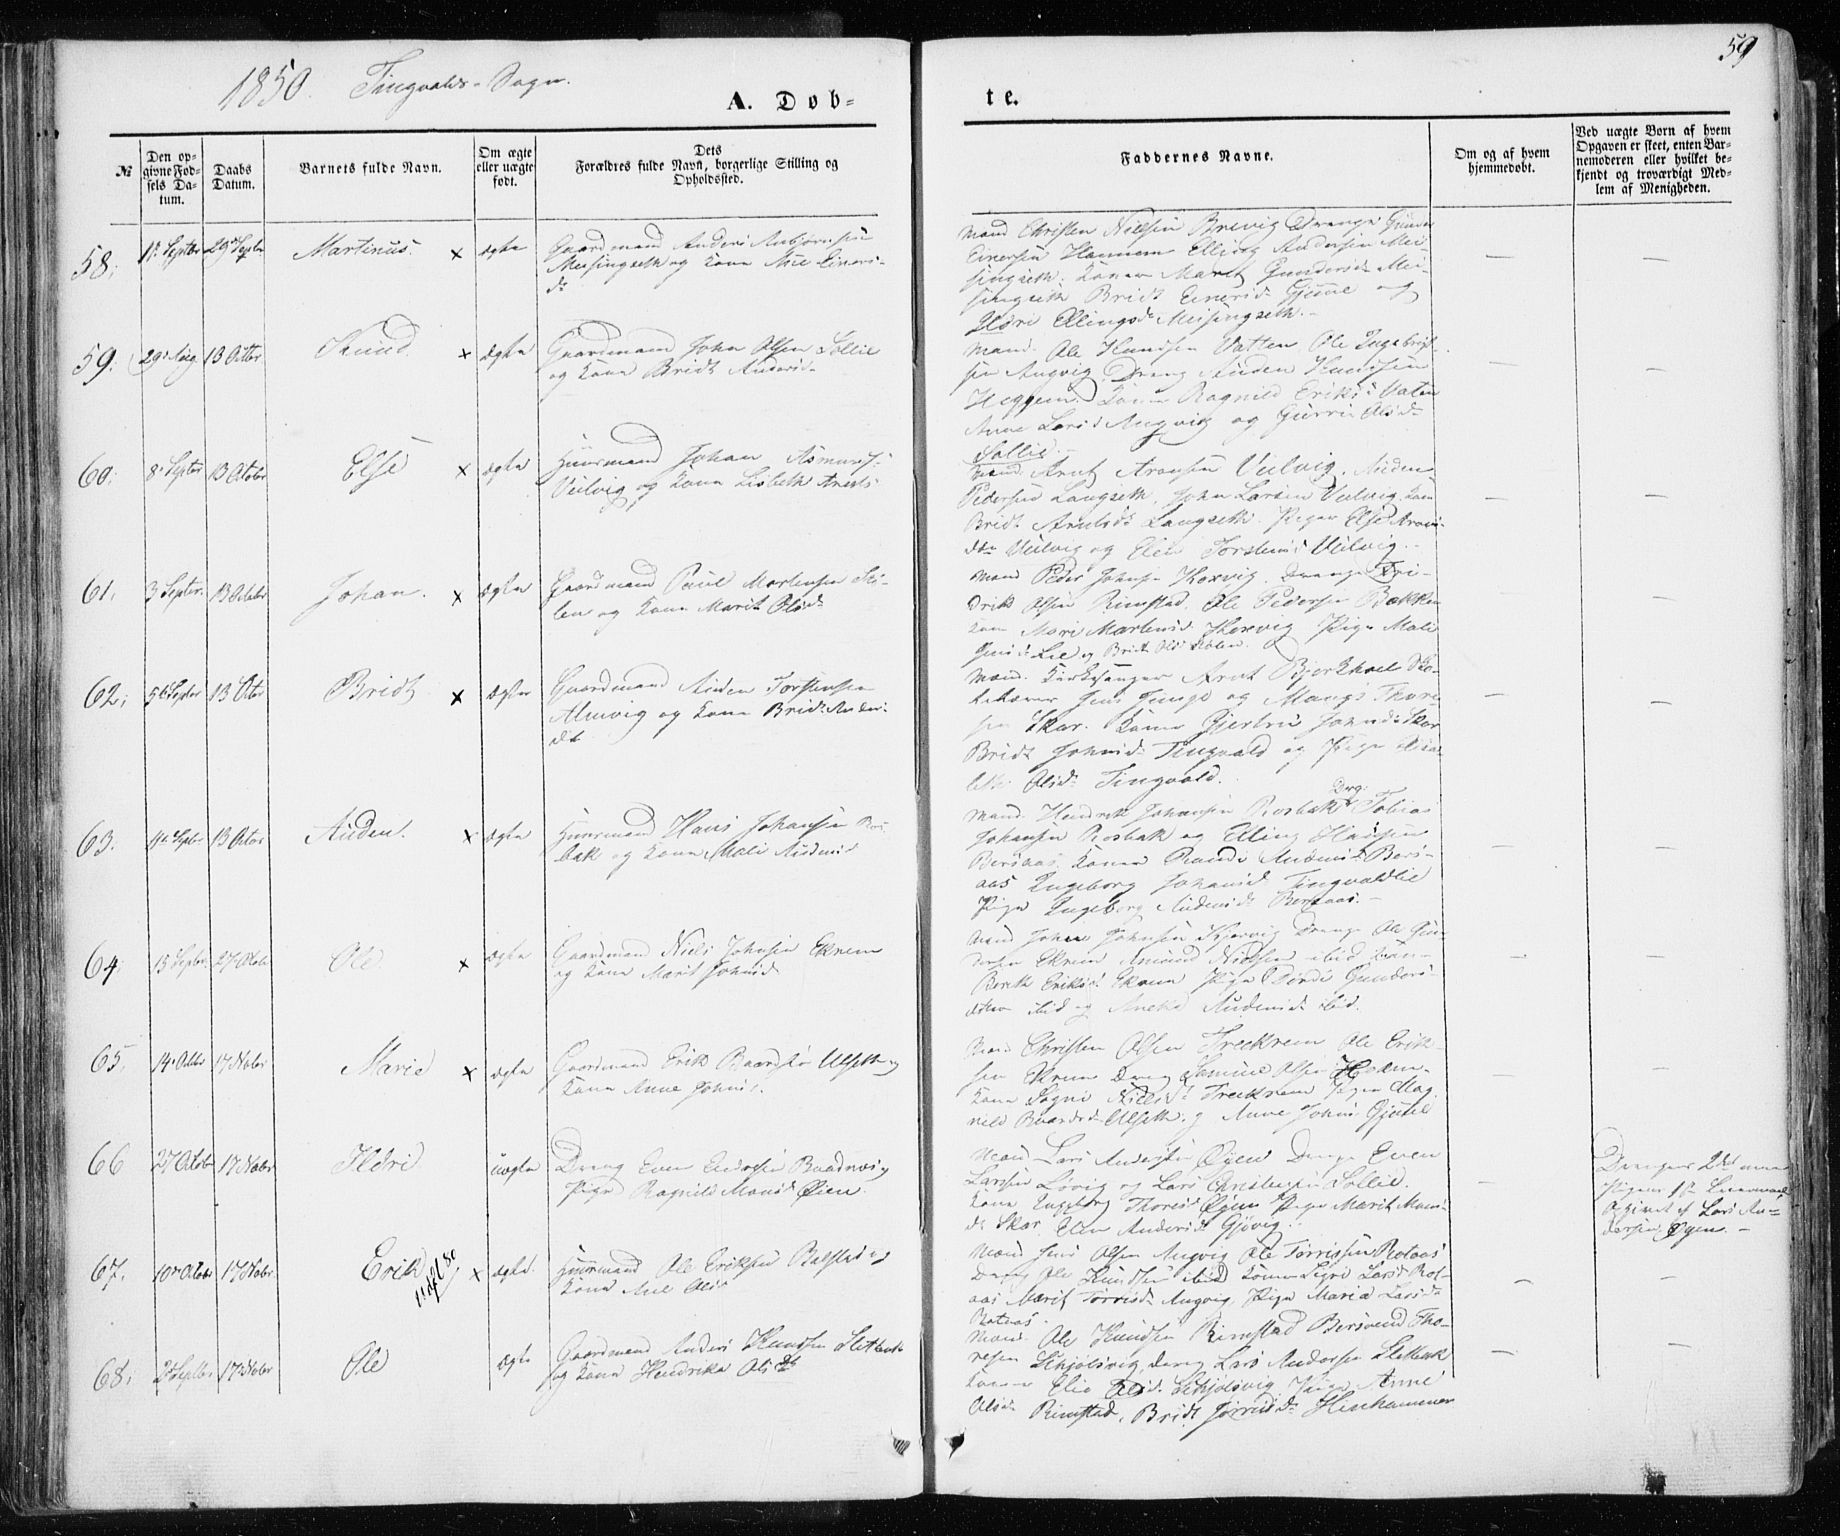 59
1850. Tingvolds-Sogn.
A. Dob-
te.
№
Den op-
givne Fød-
sels Da-
tum.
Daabs
Datum.
Barnets fulde Navn.
Om ægte
eller uægte
født.
Dets
Forældres fulde Navn, borgerlige Stilling og
Opholdssted.
Faddernes Navne.
Om og af hvem
hjemmedøbt.
Ved uægte Børn af hvem
Opgaven er skeet, enten Bar-
nemoderen eller hvilket be-
kjendt og troværdigt Med-
lem af Menigheden.
58. 29 Septbr Martinus. x ægte Gaardmand Anders Anbjørnsen
Meisingseth og Kone Ane Einars-
dr
Mand Christen Nielsen Brevig Drenge Gunder
Einersen Hammem Elling Andersen Mei-
singseth. Koner Marit Gundersdr Mei-
singseth Bridt Einersdr Gjøvne og
Ildri Ellingsdr Meisingseth. –
59. 29 Aug 13 Octbr. Knud x ægte Gaardmand John Olsen Sollie
og Kone Bridt Andersdr
Mand. Ole Knudsen Vatten Ole Ingebrigt-
sen Angvig Dreng Auden Knudsen
Heggem. Koner Ragnild Eriksd Vaten
Anne Larsd Angvig og Gurri Olsdr
Sollie. –
60. 8 Septbr 13 Octobr Else x ægte Huusmand Johan Asmunds-
Vulvig og Kone Lisbeth Arnts-
Mand. Arnt Aronsen Vulvig. Auden
Pedersen Langseth, John Larsen Vulvig Kone
Bridt Arntsdr Langseth. Piger Else Arons-
dtr Vulvig og Elen Torstensd Vulvig. –
61. 3 Septbr. 13 Octobr Johan. x ægte Gaardmand Paul Mortensen Stø-
len og Kone Marit Olsdr
Mand Peder Johns. Korsvig. Drenge Fri-
drik Olsen Rimstad. Ole Pedersen Bakken
Kone Mari Martensd. Korsvig Pige Mali
Jensd Lie og Bridt Olsd Stølen.
62. 5 Septbr 13 Octbr Bridt x ægte Gaardmand Auden Torstensen
Almvig og Kone Bridt Anders-
dt.
Mand. Kirkesanger Arnt Bjerkhoel Sko-
leholder Jens Tinge og Mangs Thore-
sen Skar. Koner Gjertru Johnsdr Skar
Bridt Johnsd Tingvald og Pige Elisa-
beth Olsdr Tingvald.
63. 4 Septbr 13 Octbr Auden. x ægte Huusmand Hans Johansen Ros-
bak og Kone Mali Audensd
Mand Hendrik Johansen Rosbak Drg: Tobias
Johansen Rosbak og Elling Hansen
Bersaas Koner Randi Audensd Bers-
aas Ingeborg Johansd Tingvaldlie
Pige Ingeborg Audensdr Bersaas. –
64. 15 Septbr. 27 Octobr Ole x ægte Gaardmand Niels Johnsen Ekrem
og Kone Marit Johnsd
Mand John Johnsen Korsvig Drenge Ole Gun-
dersen Ekrem Amund Nielsen ibid Kone
Bereth Eriksd Ekrem Pige Dordi Gunders-
datter ibid og Aneka Audensdr ibid.
65. 14 Octbr 17 Nobr Marie x ægte Gaardmand Erik Baardsen Ulseth og
Kone Anne Johnsd.
Mand Christen Olsen Treekrem Ole Erik-
sen Ekrem Dreng Samuel Olsen
Kone Sigri Nielsd Treekrem Piger Mag-
nild Baardsdr Ulseth og Anne Johnsd
66 27 Octobr 17 Nobr Ildri uægte Dreng Even Endresen Baadnes og
Pige Ragnild Monsd Øien.
Mand Lars Andersen Øyen Drenge Even
Larsen Løvig og Lars Christensen Sollie.
Kone Ingeborg Thoresd Øyen Piger Marit Mons-
dr Skar. Elen Andersdr Gjøvig.
Drengens 2det men
Pigens 1ste Leiermaal
Opgivet af Lars An-
dersen Øyen. –
67. 10 Octobr 17 Nobr. Erik x ægte. Huusmand Ole Eriksen Balstad og
Kone Ane Olsdr
Mand Jens Olsen Angvig Ole Torrissen Rotaas
Dreng Ole Knudsen ibid Koner Sigri Larsdr Rot-
aas Marit Torrisdr Angvig. Pige Maria Larsdr
Rotaas. –
68. 2 Septbr. 17 Nobr Ole ægte Gaardmand Anders Knudsen Sletbak
og Kone Hendrika Olsdtr
Mand. Ole Knudsen Rimstad Bersvend Tho-
resen Skjølsvig, Dreng Lars Andersen Sletbak
Koner Elie Olsdr Skjølsvig Pige Anne
Olsdr Rimstad, Bridt Torrisdr Hinhammer